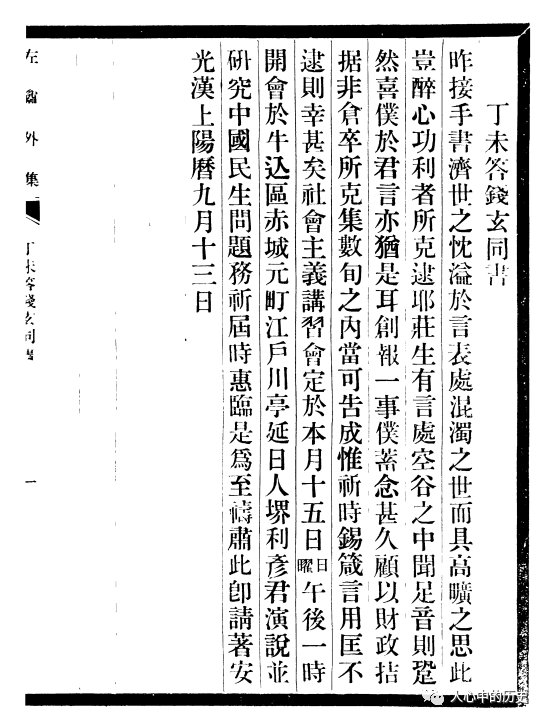 丁未答錢玄同書
昨接手書濟世之忱溢於言表處混濁之世而具高曠之思此
豈醉心功利者所克逮耶莊生有言處空谷之中聞足音則跫
然喜僕於君言亦猶是耳創報一事僕蓄念甚久顧以財政拮
据非倉卒所克集數旬之內當可告成惟祈時錫箴言用匡不
逮則幸甚矣社會主義講習會定於本月十五日日曜午後一時
開會於牛込區赤城元町江戶川亭延日人堺利彥君演說並
研究中國民生問題務祈屆時惠臨是爲至禱肅此卽請著安
光漢上陽曆九月十三日
左盦外集
丁未答錢玄同書
一
人心中的历史